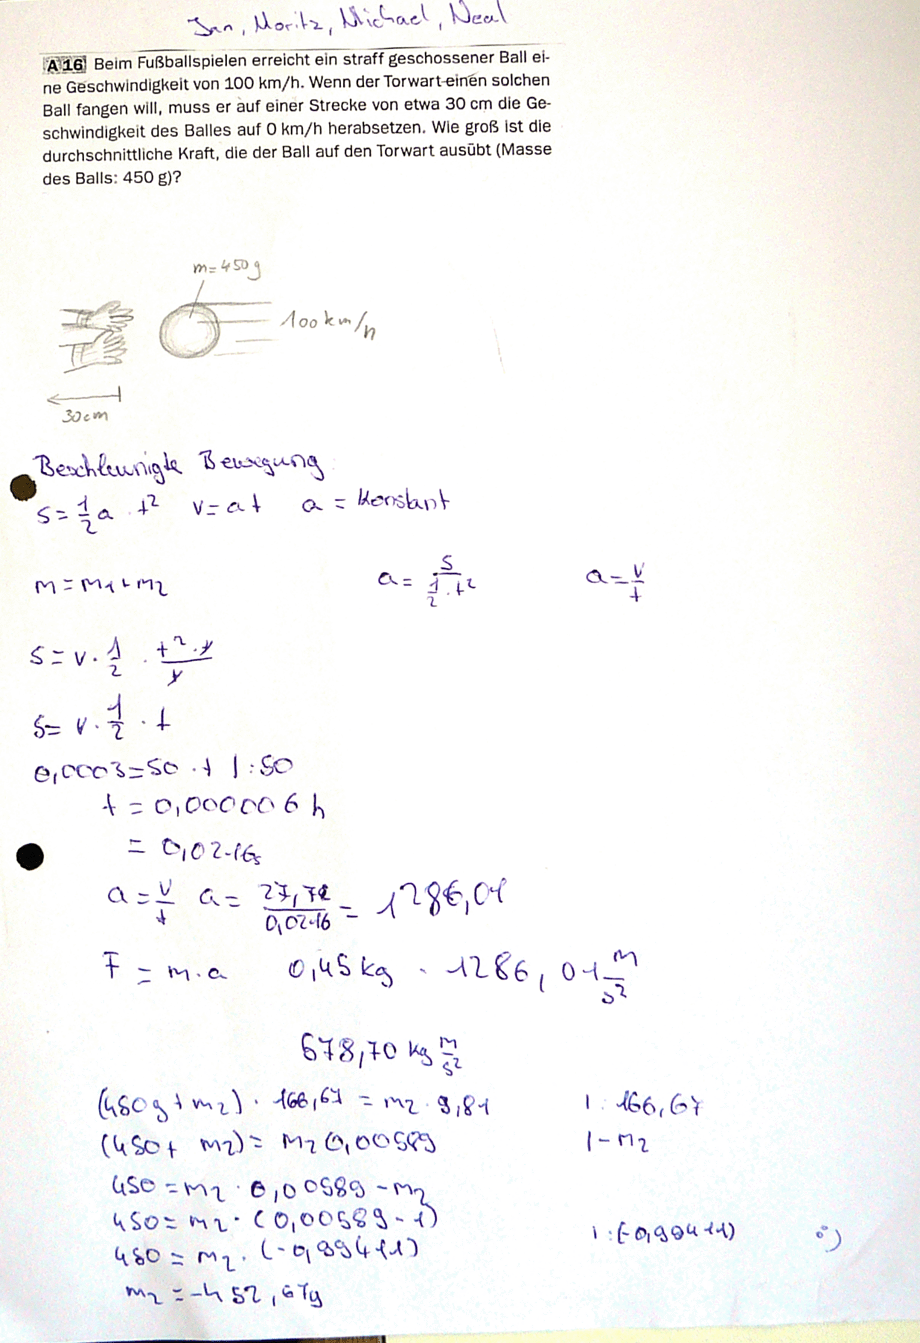 Jan, Moritz, Michael, Neal
A 16 Beim Fußballspielen erreicht ein straff geschossener Ball ei-
ne Geschwindigkeit von 100 km/h. Wenn der Torwart einen solchen
Ball fangen will, muss er auf einer Strecke von etwa 30 cm die Ge-
schwindigkeit des Balles auf 0 km/h herabsetzen. Wie groß ist die
durchschnittliche Kraft, die der Ball auf den Torwart ausübt (Masse
des Balls: 450 g)?
m=450g
100 km/h
30cm
Beschleunigte Bewegung
s=1/2 a · t² v=at a = Konstant
m=m1+m2 a= s/(1/2·t²) a=v/t
s=v·1/2·(t²·x)/x
s=v·1/2·t
0,0003=50·t |:50
t=0,000006 h
=0,0216s
a=v/t a=27,78/0,0216=1286,01
F=m·a 0,45kg·1286,01 m/s²
678,70 kg m/s²
(450g+m2)·166,67=m2·9,81 |:166,67
(450+m2)=m2 0,00589 |-m2
450=m2·0,00589-m2
450=m2·(0,00589-1)
450=m2·(-0,99411) |:(-0,99411)
m2=-452,67g
:)